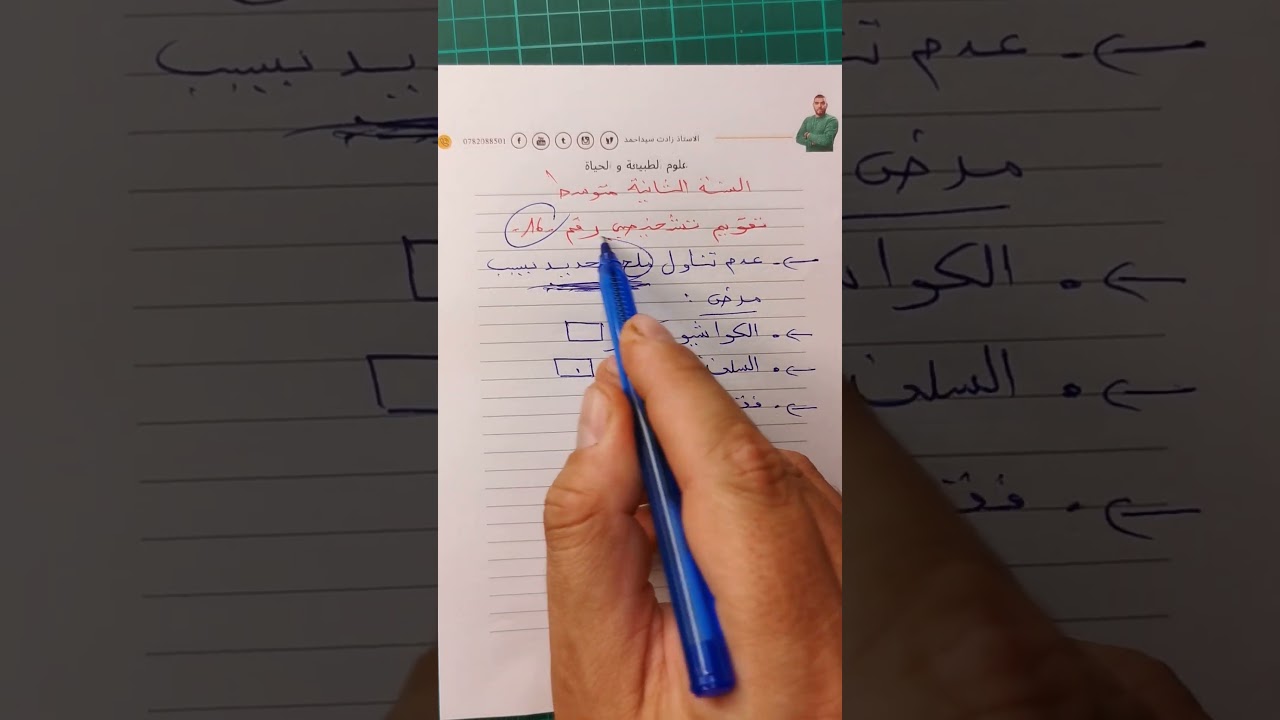 الاستاذ زادت سيداحمد 0782088501
علوم الطبيعة و الحياة
السنة الثانية متوسط
تقويم تشخيصي رقم -16-
عدم تناول ملح الحديد بسبب
مرض :
الكواشيور
السلعة
فقر